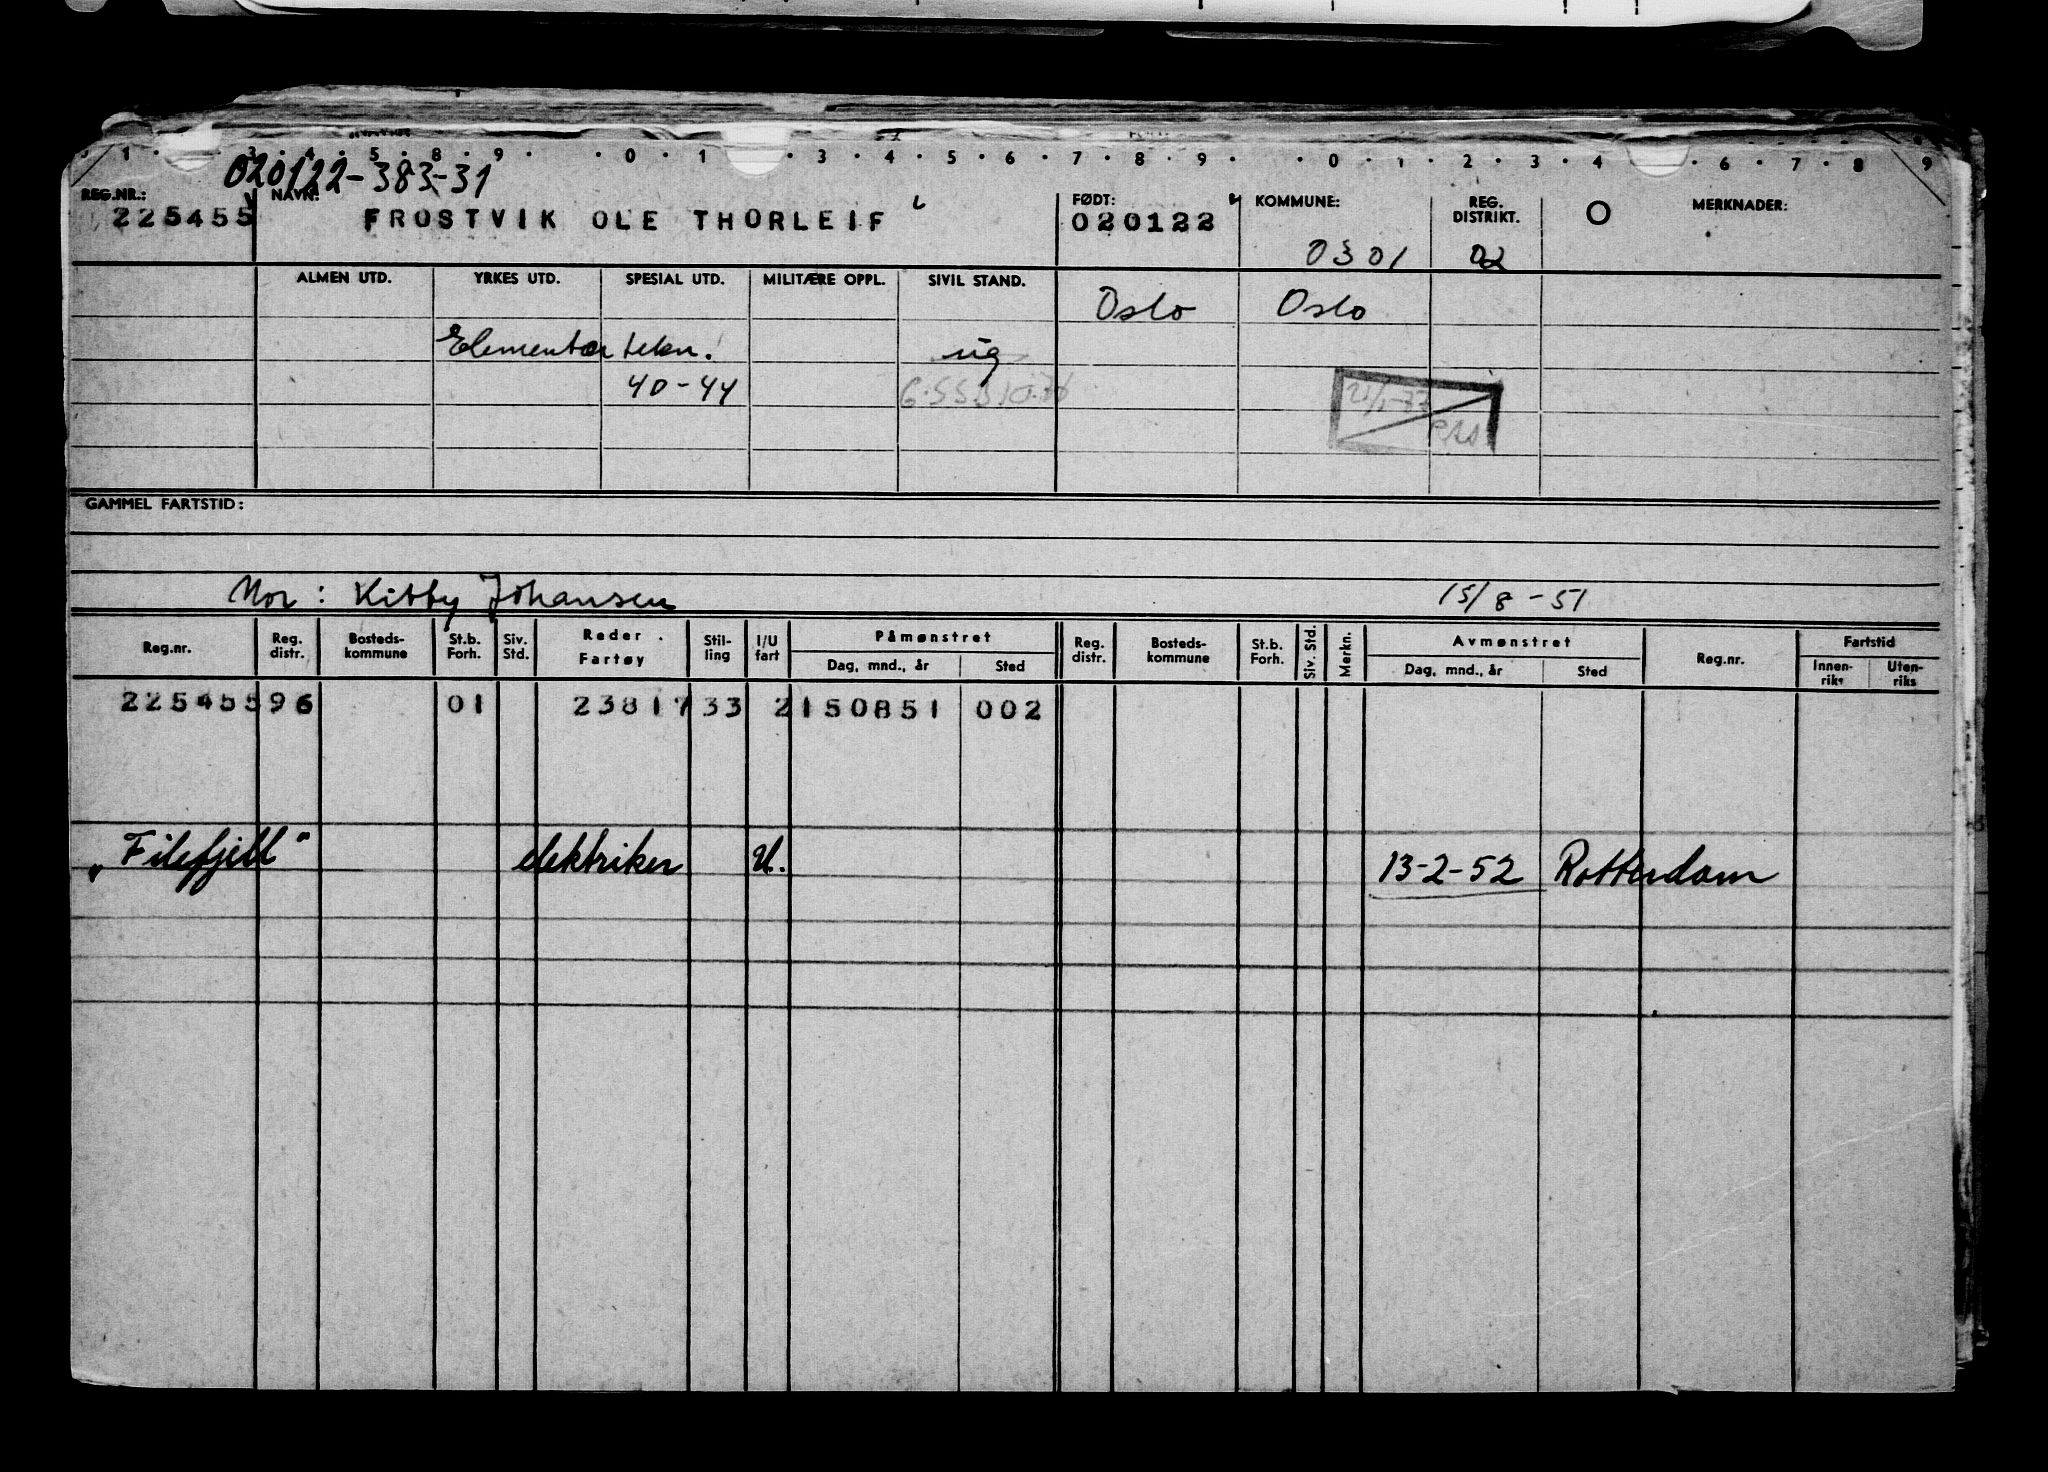 1 3 5 8 9 0 1 3 4 5 6 7 8 9 0 1 2 3 4 6 7 8 9
020122-383-31
REG.NR.: NAVN: FØDT: KOMMUNE: REG. DISTRIKT. O MERKNADER:
225455 FROSTVIK OLE THORLEIF 020122
0301 02
ALMEN UTD. YRKES UTD. SPESIAL UTD. MILITÆRE OPPL. SIVIL STAND.
Oslo Oslo
Elementær tekn. ug
40-44
21/1-77
GAMMEL FARTSTID:
Mor: Kitty Johansen 15/8-51
Reg.nr. Reg. distr. Bosteds-kommune St.b. Forh. Siv. Std. Reder Fartøy Stil-ling I/U fart Påmønstret Reg. distr. Bosteds-kommune St.b. Forh. Siv. Std. Merkn. Avmønstret Reg.nr. Fartstid
Dag, mnd., år Sted Dag, mnd., år Sted Innen-riks Uten-riks
225455 96 01 23817 33 2 150851 002
„Filefjell" elektriker U. 13-2-52 Rotterdam